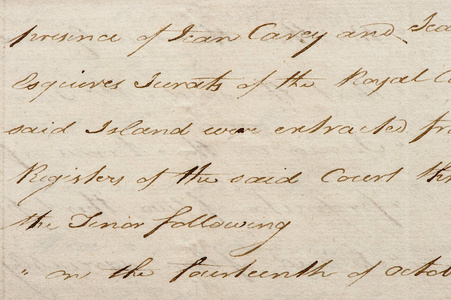 presence of Jean Carey and Jea
Esquires Jurats of the Royal Co
said Island were extracted fro
Registers of the said Court th
the Tenor following
" on the fourteenth of octo